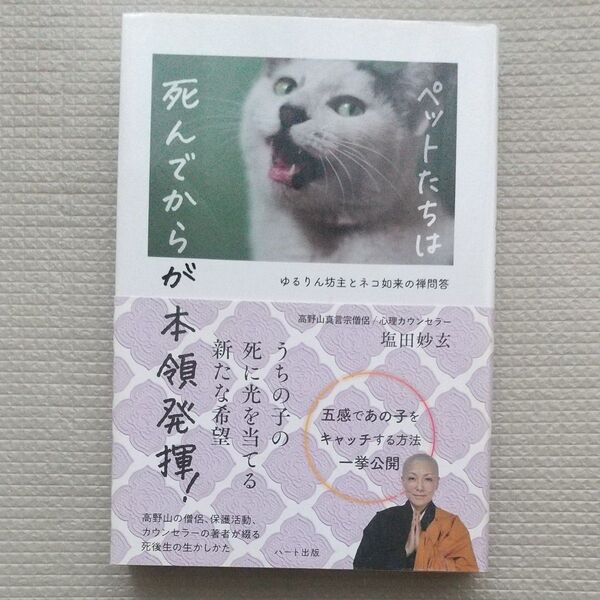 ペットたちは
死んでからが本領発揮!
ゆるりん坊主とネコ如来の禅問答
高野山真言宗僧侶/心理カウンセラー
塩田妙玄
うちの子の
死に光を当てる
新たな希望
五感であの子を
キャッチする方法
一挙公開
高野山の僧侶、保護活動、
カウンセラーの著者が綴る
死後生の生かしかた
ハート出版